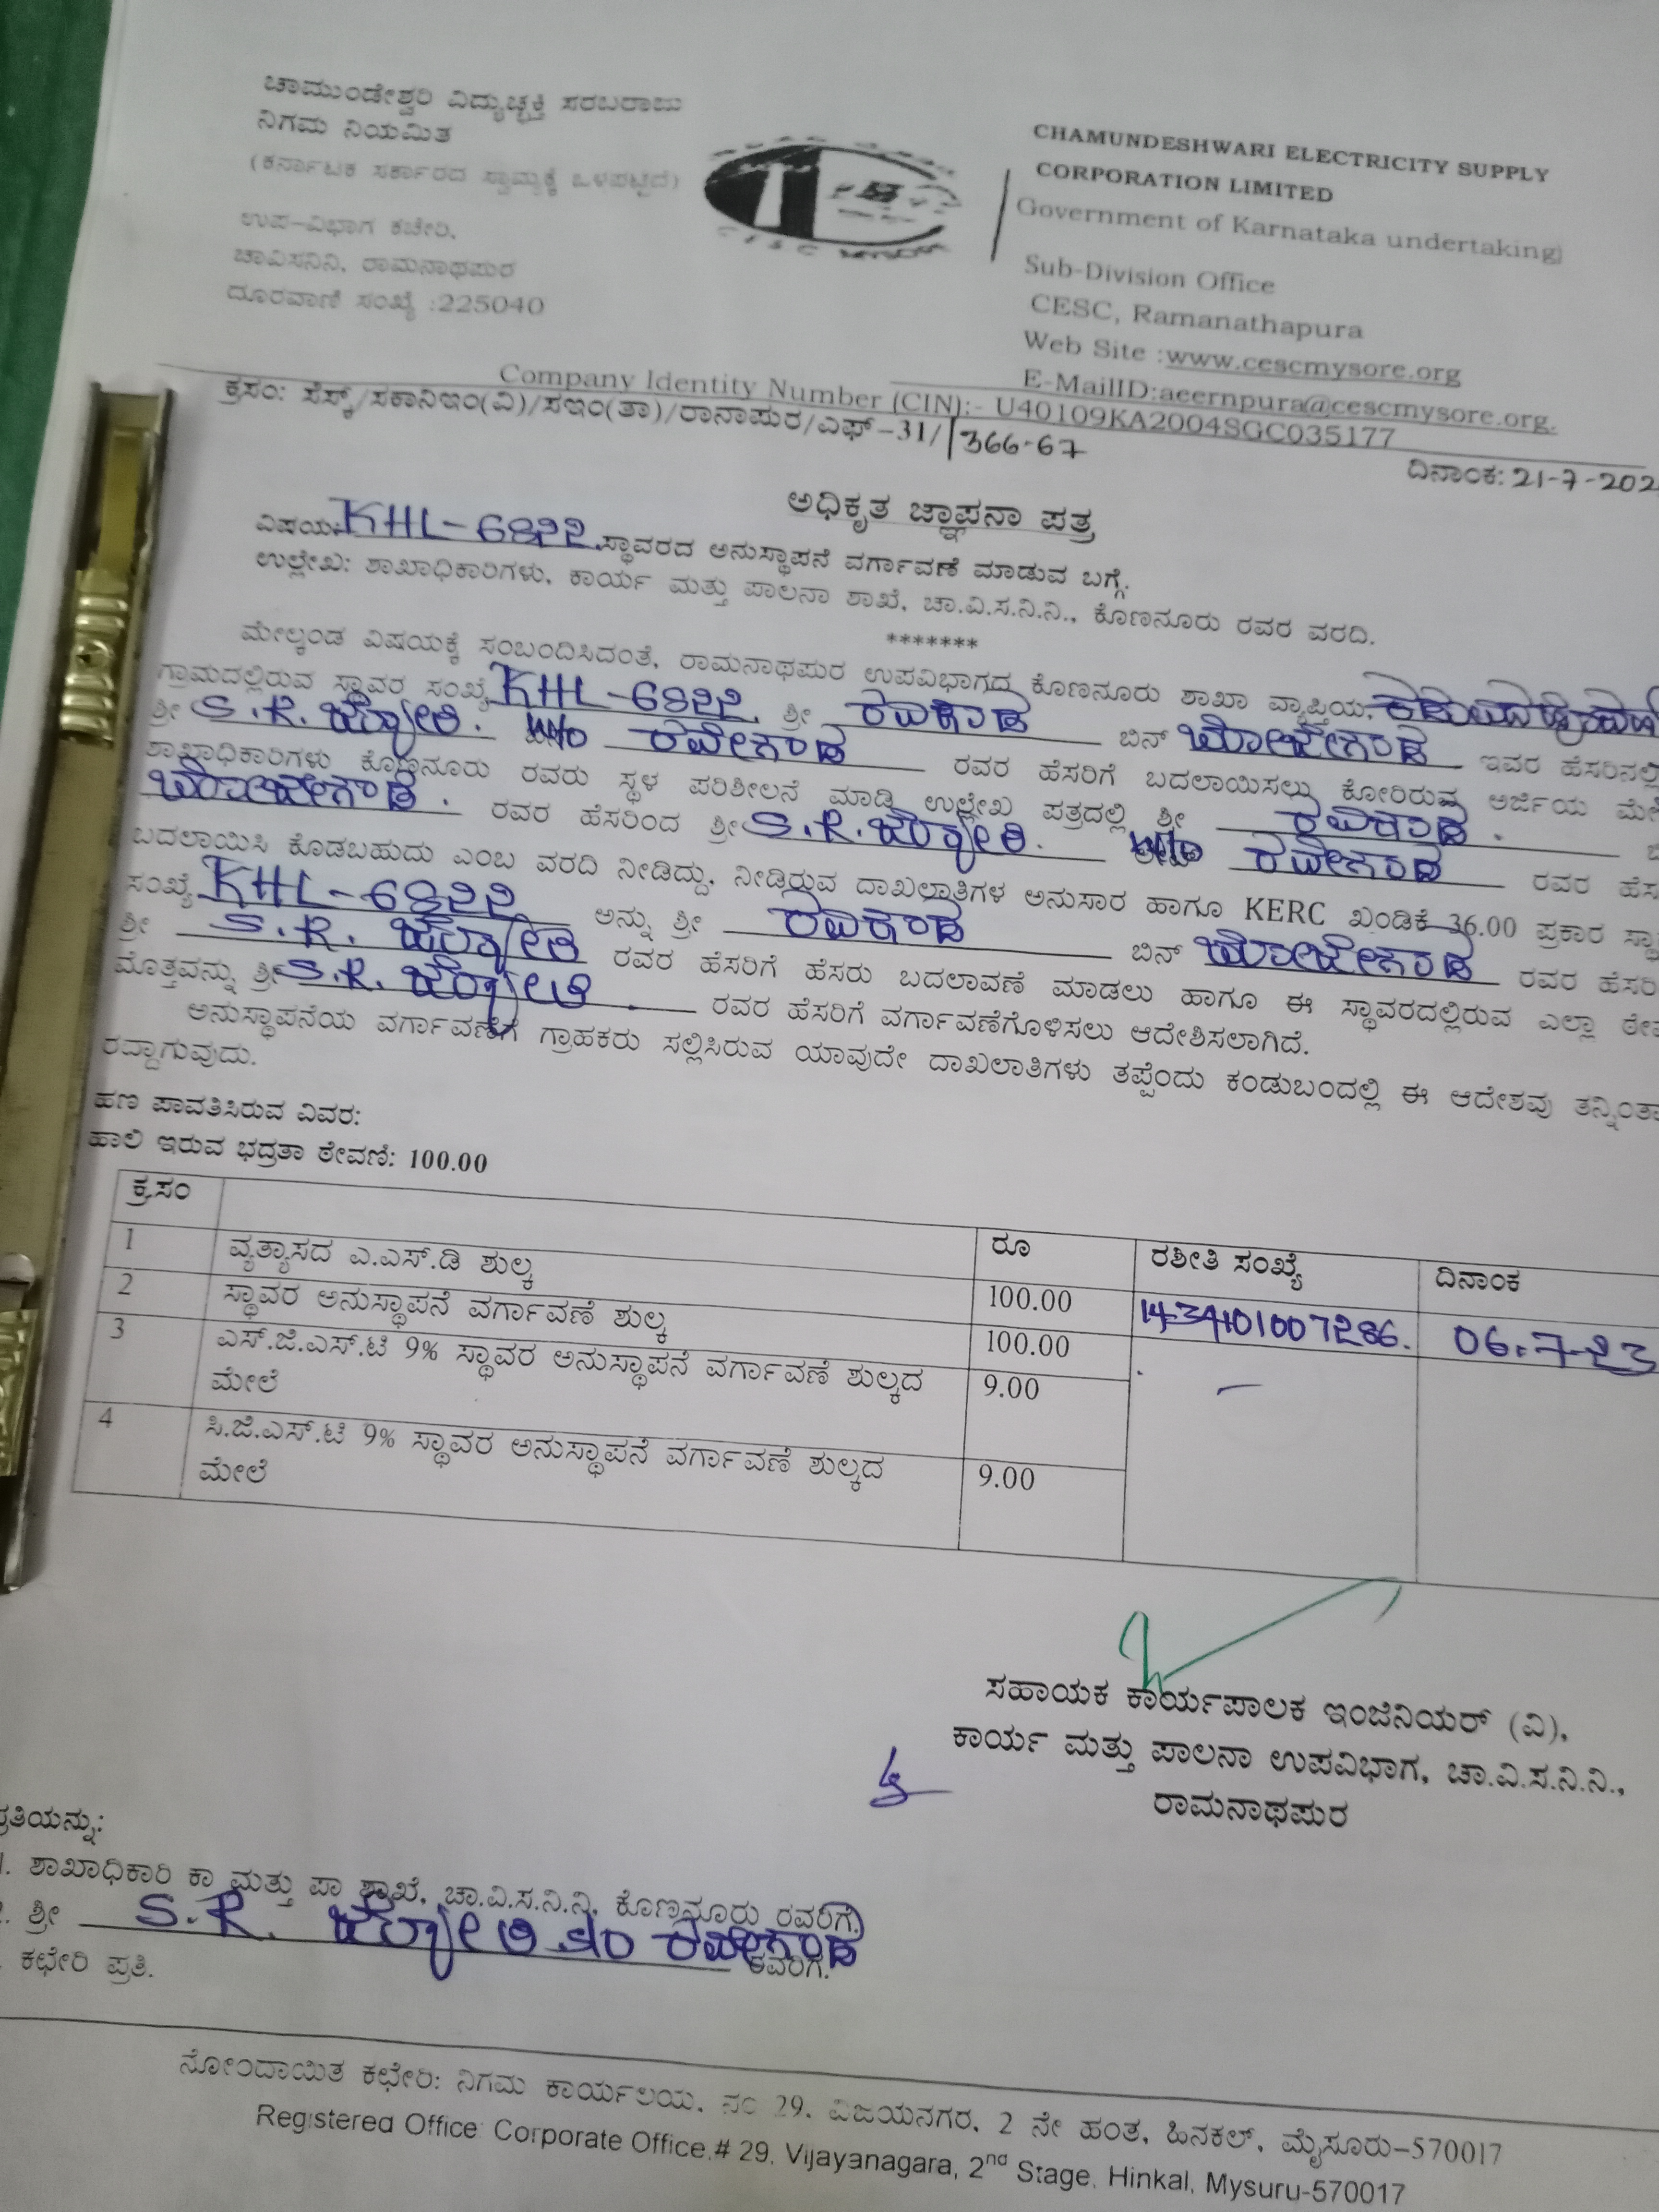 ಚಾಮುಂಡೇಶ್ವರಿ ವಿದ್ಯುಚ್ಛಕ್ತಿ ಸರಬರಾಜು
ನಿಗಮ ನಿಯಮಿತ
(ಕರ್ನಾಟಕ ಸರ್ಕಾರದ ಸ್ವಾಮ್ಯಕ್ಕೆ ಒಳಪಟ್ಟಿದೆ)
ಉಪ-ವಿಭಾಗ ಕಚೇರಿ,
ಚಾವಿಸನಿನಿ, ರಾಮನಾಥಪುರ
ದೂರವಾಣಿ ಸಂಖ್ಯೆ :225040
CHAMUNDESHWARI ELECTRICITY SUPPLY
CORPORATION LIMITED
Government of Karnataka undertaking)
Sub-Division Office
CESC, Ramanathapura
Web Site :www.cescmysore.org
E-MailID:aeernpura@cescmysore.org.
Company Identity Number (CIN):- U40109KA2004SGC035177
ಕ್ರಸಂ: ಸೆಸ್ಕ್/ಸಕಾನಿಇಂ(ವಿ)/ಸಇಂ(ತಾ)/ರಾನಾಪುರ/ಎಫ್-31/ 1366-67
ದಿನಾಂಕ: 21-7-202
ಅಧಿಕೃತ ಜ್ಞಾಪನಾ ಪತ್ರ
ವಿಷಯ: KHL-6822 ಸ್ಥಾವರದ ಅನುಸ್ಥಾಪನೆ ವರ್ಗಾವಣೆ ಮಾಡುವ ಬಗ್ಗೆ.
ಉಲ್ಲೇಖ: ಶಾಖಾಧಿಕಾರಿಗಳು, ಕಾರ್ಯ ಮತ್ತು ಪಾಲನಾ ಶಾಖೆ, ಚಾ.ವಿ.ಸ.ನಿ.ನಿ., ಕೊಣನೂರು ರವರ ವರದಿ.
*******
ಮೇಲ್ಕಂಡ ವಿಷಯಕ್ಕೆ ಸಂಬಂದಿಸಿದಂತೆ, ರಾಮನಾಥಪುರ ಉಪವಿಭಾಗದ ಕೊಣನೂರು ಶಾಖಾ ವ್ಯಾಪ್ತಿಯ,
ಗ್ರಾಮದಲ್ಲಿರುವ ಸ್ಥಾವರ ಸಂಖ್ಯೆ KHL-6822 ಶ್ರೀ ರವಿಕಾಡ ಬಿನ್ ಬೋಜೇಗೌಡ ಇವರ ಹೆಸರಿನಲ್ಲಿ
ಶ್ರೀ S.R. ಜ್ಯೋತಿ. W/o ರವೀಗೌಡ ರವರ ಹೆಸರಿಗೆ ಬದಲಾಯಿಸಲು ಕೋರಿರುವ ಅರ್ಜಿಯ ಮೇ
ಶಾಖಾಧಿಕಾರಿಗಳು ಕೊಣನೂರು ರವರು ಸ್ಥಳ ಪರಿಶೀಲನೆ ಮಾಡಿ ಉಲ್ಲೇಖ ಪತ್ರದಲ್ಲಿ ಶ್ರೀ ರವಿಕಾಡ.
ಬೋಜೇಗೌಡ. ರವರ ಹೆಸರಿಂದ ಶ್ರೀ S.R. ಜ್ಯೋತಿ. W/o ರವೀಗೌಡ ರವರ ಹೆಸ
ಬದಲಾಯಿಸಿ ಕೊಡಬಹುದು ಎಂಬ ವರದಿ ನೀಡಿದ್ದು, ನೀಡಿರುವ ದಾಖಲಾತಿಗಳ ಅನುಸಾರ ಹಾಗೂ KERC ಖಂಡಿಕೆ 36.00 ಪ್ರಕಾರ ಸ್ಥಾ
ಸಂಖ್ಯೆ KHL-6822 ಅನ್ನು ಶ್ರೀ ರವಿಕಾಡ ಬಿನ್ ಬೋಜೇಗೌಡ ರವರ ಹೆಸರಿ
ಶ್ರೀ S.R. ಜ್ಯೋತಿ ರವರ ಹೆಸರಿಗೆ ಹೆಸರು ಬದಲಾವಣೆ ಮಾಡಲು ಹಾಗೂ ಈ ಸ್ಥಾವರದಲ್ಲಿರುವ ಎಲ್ಲಾ ಠೇವ
ಮೊತ್ತವನ್ನು ಶ್ರೀ S.R. ಜ್ಯೋತಿ. ರವರ ಹೆಸರಿಗೆ ವರ್ಗಾವಣೆಗೊಳಿಸಲು ಆದೇಶಿಸಲಾಗಿದೆ.
ಅನುಸ್ಥಾಪನೆಯ ವರ್ಗಾವಣೆಗೆ ಗ್ರಾಹಕರು ಸಲ್ಲಿಸಿರುವ ಯಾವುದೇ ದಾಖಲಾತಿಗಳು ತಪ್ಪೆಂದು ಕಂಡುಬಂದಲ್ಲಿ ಈ ಆದೇಶವು ತನ್ನಿಂತಾ
ರದ್ದಾಗುವುದು.
ಹಣ ಪಾವತಿಸಿರುವ ವಿವರ:
ಹಾಲಿ ಇರುವ ಭದ್ರತಾ ಠೇವಣಿ: 100.00
ಕ್ರ.ಸಂ ರೂ ರಶೀತಿ ಸಂಖ್ಯೆ ದಿನಾಂಕ
1 ವ್ಯತ್ಯಾಸದ ಎ.ಎಸ್.ಡಿ ಶುಲ್ಕ 100.00 1434101007286. 06.7-23
2 ಸ್ಥಾವರ ಅನುಸ್ಥಾಪನೆ ವರ್ಗಾವಣೆ ಶುಲ್ಕ 100.00
3 ಎಸ್.ಜಿ.ಎಸ್.ಟಿ 9% ಸ್ಥಾವರ ಅನುಸ್ಥಾಪನೆ ವರ್ಗಾವಣೆ ಶುಲ್ಕದ 9.00
ಮೇಲೆ
4 ಸಿ.ಜಿ.ಎಸ್.ಟಿ 9% ಸ್ಥಾವರ ಅನುಸ್ಥಾಪನೆ ವರ್ಗಾವಣೆ ಶುಲ್ಕದ 9.00
ಮೇಲೆ
ಸಹಾಯಕ ಕಾರ್ಯಪಾಲಕ ಇಂಜಿನಿಯರ್ (ವಿ),
ಕಾರ್ಯ ಮತ್ತು ಪಾಲನಾ ಉಪವಿಭಾಗ, ಚಾ.ವಿ.ಸ.ನಿ.ನಿ.,
ರಾಮನಾಥಪುರ
ಪ್ರತಿಯನ್ನು:
1. ಶಾಖಾಧಿಕಾರಿ ಕಾ ಮತ್ತು ಪಾ ಶಾಖೆ, ಚಾ.ವಿ.ಸ.ನಿ.ನಿ, ಕೊಣನೂರು ರವರಿಗೆ.
ಶ್ರೀ S.R. ಜ್ಯೋತಿ ರವೀಗೌಡ ರವರಿಗೆ.
ಕಛೇರಿ ಪ್ರತಿ.
ನೋಂದಾಯಿತ ಕಛೇರಿ: ನಿಗಮ ಕಾರ್ಯಲಯ, ನಂ 29, ವಿಜಯನಗರ, 2 ನೇ ಹಂತ, ಹಿನಕಲ್, ಮೈಸೂರು-570017
Registered Office: Corporate Office,# 29, Vijayanagara, 2nd Stage, Hinkal, Mysuru-570017